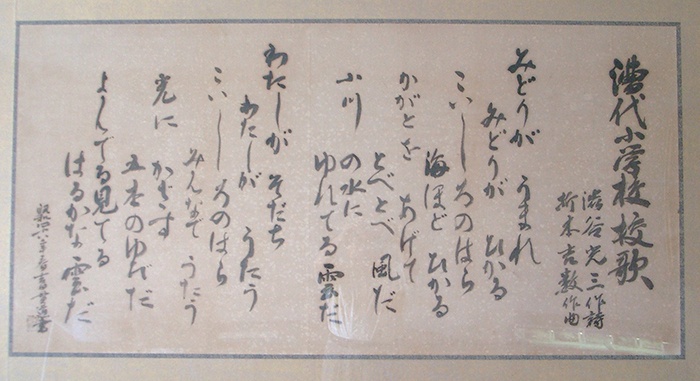 漕代小学校校歌
澁谷光三作詩
折木吉数作曲
みどりが うまれ
みどりが ひかる
こいしろのはら
海ほど ひかる
かがとを あげて
とべとべ 風だ
小川の水に
ゆれてる雲だ
わたしが そだち
わたしが うたう
こいしろのはら
みんなで うたう
光に かざす
五本のゆびだ
よんでる見てる
はるかな雲だ